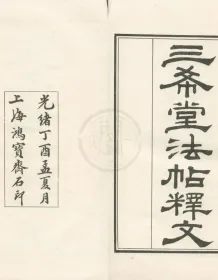 三希堂法帖釋文
光緒丁酉孟夏月
上海鴻寶齋石印